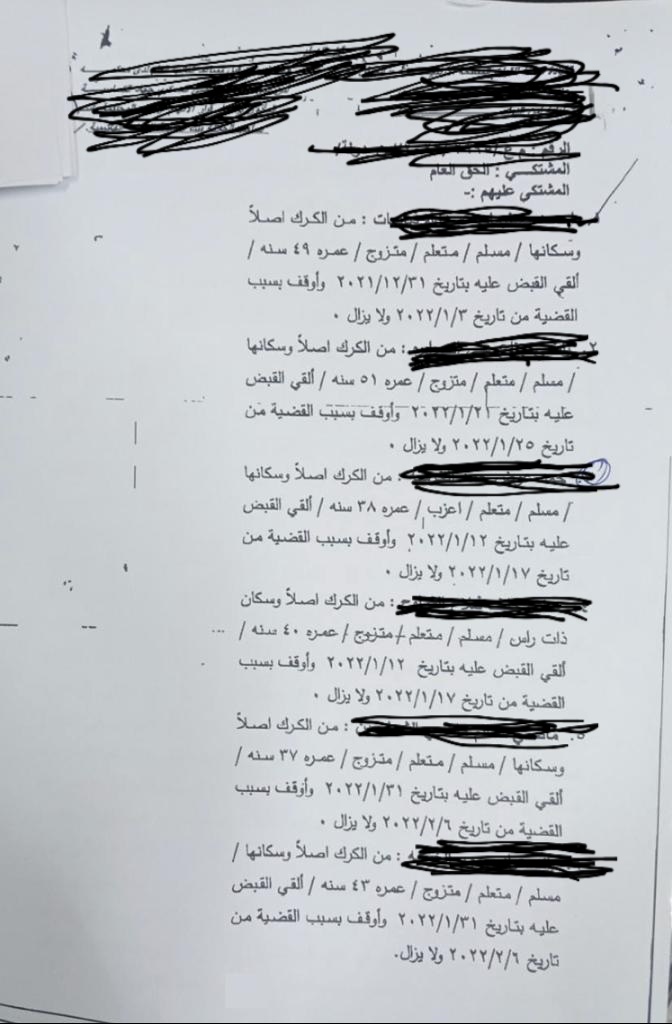 الرقم :
المشتكي : الحق العام
المشتكى عليهم :-
: من الكرك اصلاً
وسكانها / مسلم / متعلم / متزوج / عمره ٤٩ سنه /
ألقي القبض عليه بتاريخ ٢٠٢١/١٢/٣١ وأوقف بسبب
القضية من تاريخ ٢٠٢٢/١/٣ ولا يزال .
٢. : من الكرك اصلاً وسكانها
/ مسلم / متعلم / متزوج / عمره ٥١ سنه / ألقي القبض
عليه بتاريخ ٢٠٢٢/١/٢١ وأوقف بسبب القضية من
تاريخ ٢٠٢٢/١/٢٥ ولا يزال .
: من الكرك اصلاً وسكانها
/ مسلم / متعلم / اعزب / عمره ٣٨ سنه / ألقي القبض
عليه بتاريخ ٢٠٢٢/١/١٢ وأوقف بسبب القضية من
تاريخ ٢٠٢٢/١/١٧ ولا يزال .
: من الكرك اصلاً وسكان
ذات راس / مسلم / متعلم / متزوج / عمره ٤٠ سنه /
ألقي القبض عليه بتاريخ ٢٠٢٢/١/١٢ وأوقف بسبب
القضية من تاريخ ٢٠٢٢/١/١٧ ولا يزال .
: من الكرك اصلاً
وسكانها / مسلم / متعلم / متزوج / عمره ٣٧ سنه /
ألقي القبض عليه بتاريخ ٢٠٢٢/١/٣١ وأوقف بسبب
القضية من تاريخ ٢٠٢٢/٢/٦ ولا يزال .
: من الكرك اصلاً وسكانها /
مسلم / متعلم / متزوج / عمره ٤٣ سنه / ألقي القبض
عليه بتاريخ ٢٠٢٢/١/٣١ وأوقف بسبب القضية من
تاريخ ٢٠٢٢/٢/٦ ولا يزال.